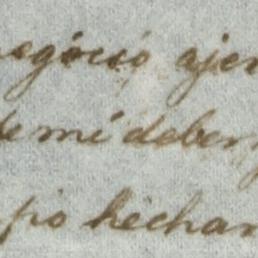 negóció ajen
de mi deber y
pio hechan